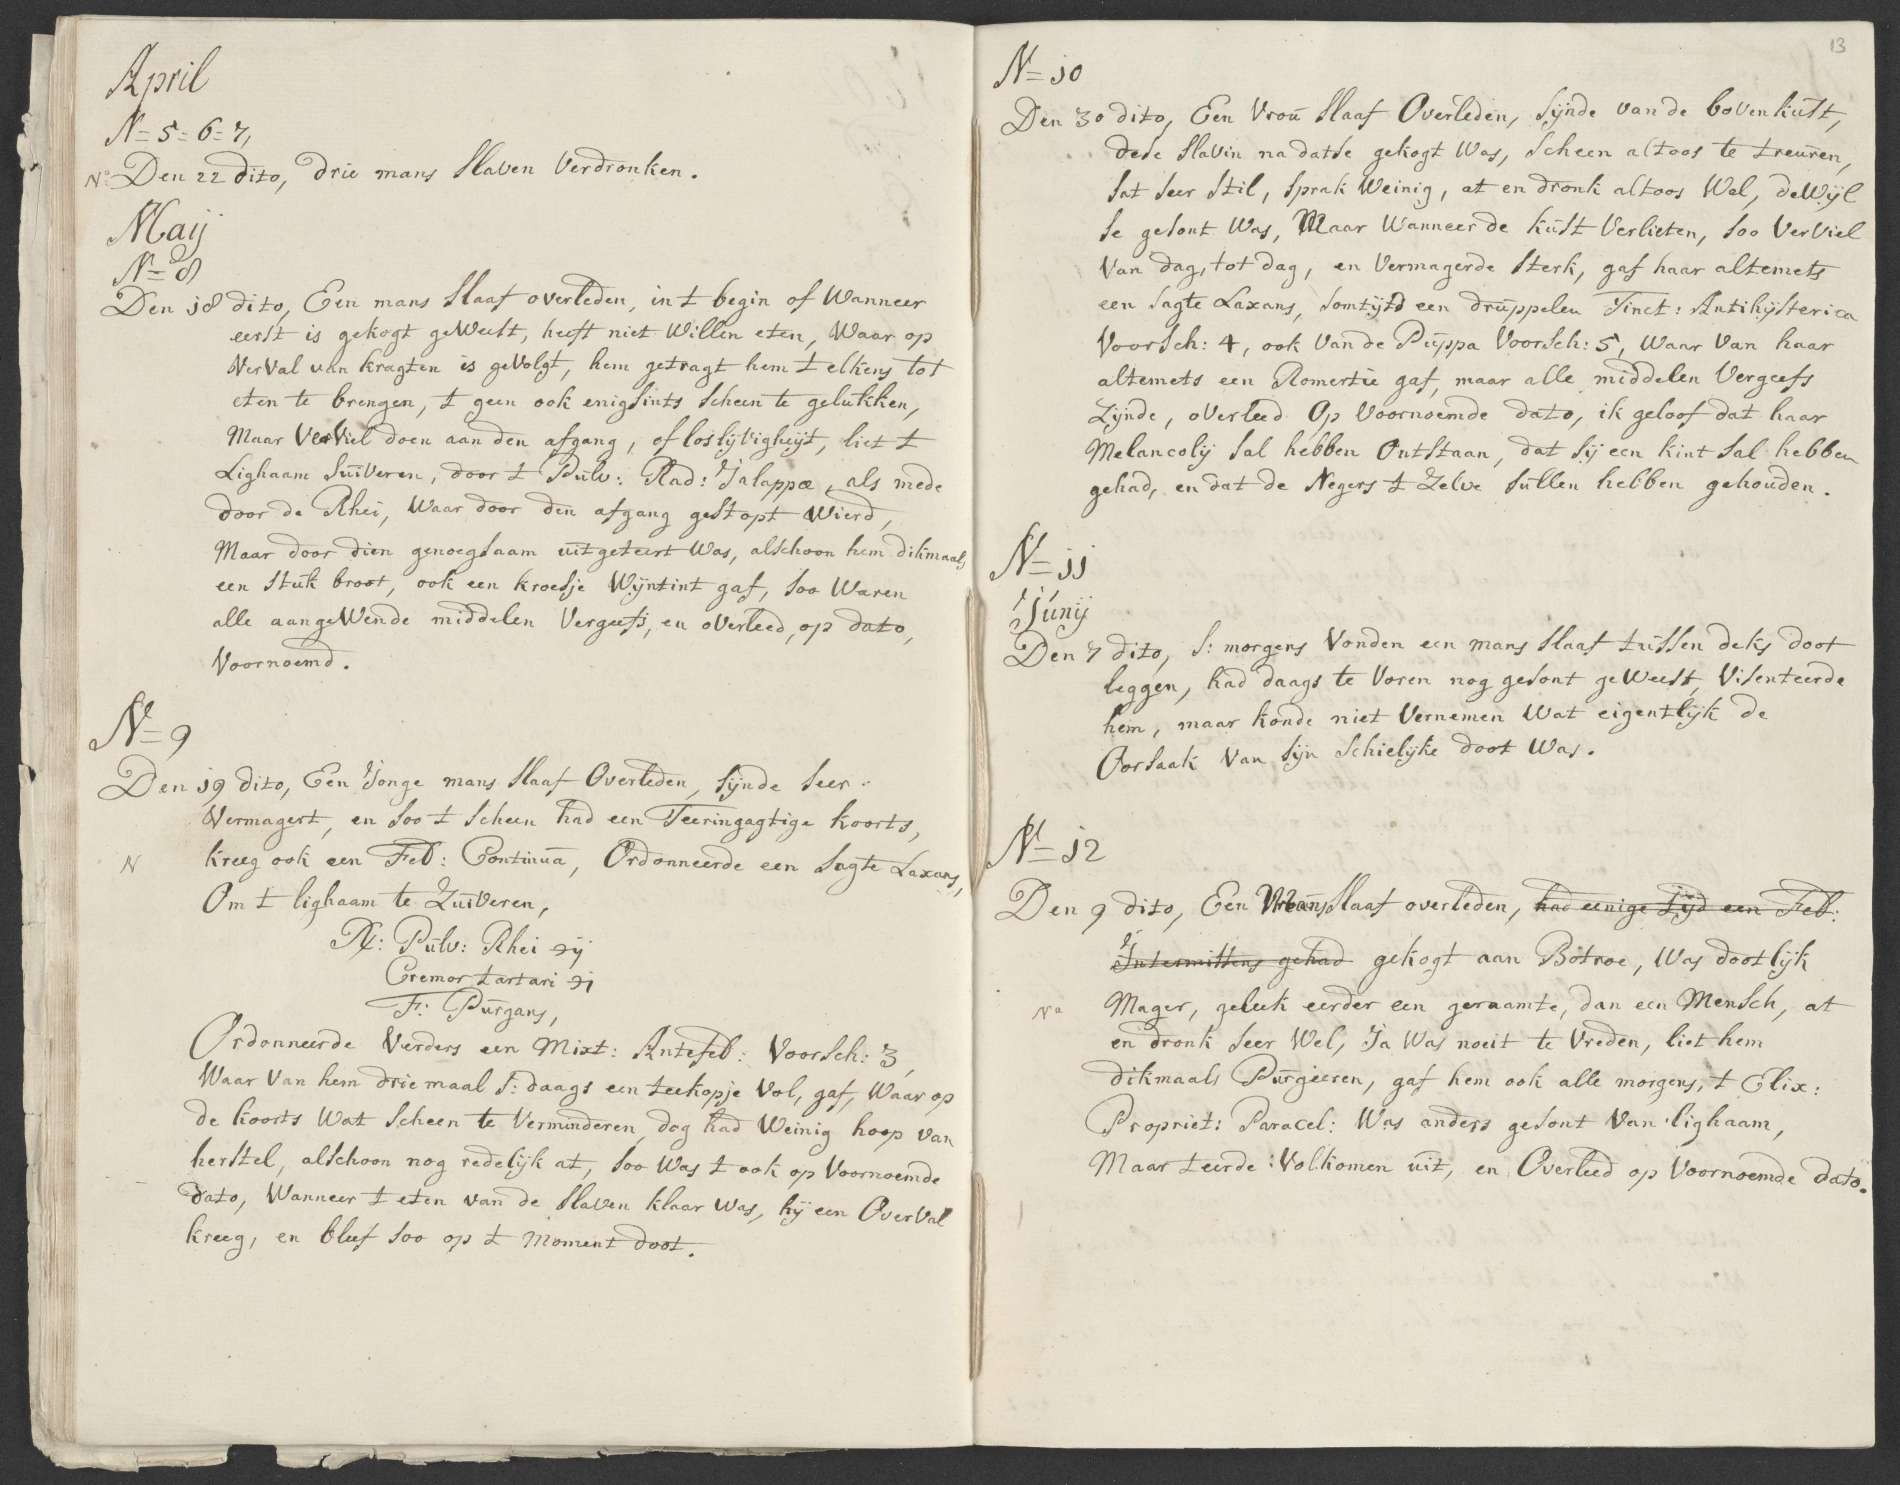 April
N= 5= 6= 7,
Nº: Den 22 dito, drie mans slaven verdronken.
Maij
N= 8
Den 18 dito, Een mans slaaf overleden, in t begin of Wanneer
eerst is gekogt geWeest, heeft niet Willen eten, Waar op
verval van kragten is gevolgt, hem getragt hem t elkens tot
eten te brengen, t geen ook enigsints scheen te gelukken,
Maar verviel doen aan den afgang, of loslijvigheijt, liet t
Lighaam suiveren, door t Pulv: Rad: Jalappæ, als mede
door de Rhei, Waar door den afgang gestopt Wierd,
Maar door dien genoegsaam uitgeteert Was, alschoon hem dikmaals
een stuk broot, ook een kroesje Wijntint gaf, soo Waren
alle aangeWende middelen vergeefs, en overleed, op dato,
voornoemd.
N= 9
Den 19 dito, Een Jonge mans slaaf Overleden, sijnde seer
vermagert, en soo t scheen had een Teeringagtige koorts,
N
kreeg ook een Feb: Continua, Ordonneerde een sagte Laxans,
Om t lighaam te Zuiveren,
Rx: Pulv: Rhei ℈ij
Cremor tartari ℈j
F: Purgans,
Ordonneerde verders een Mixt: Antefeb: voorsch: 3,
Waar van hem drie maal s: daags een teekopje vol, gaf, Waar op
de koorts Wat scheen te verminderen, dog had Weinig hoop van
herstel, alschoon nog redelijk at, soo Was t ook op voornoemde
dato, Wanneer t eten van de slaven klaar Was, hij een Overval
kreeg, en bleef soo op t Moment doot.
13
N= 10
Den 30 dito, Een vrou slaaf Overleden, sijnde van de bovenkust,
dese slavin na datse gekogt Was, scheen altoos te treuren,
sat seer stil, sprak Weinig, at en dronk altoos Wel, deWijl
se gesont Was, Maar Wanneer de kust verlieten, soo verviel
van dag, tot dag, en vermagerde sterk, gaf haar altemets
een sagte Laxans, somtijts een druppelen Tinct: Antihijsterica
voorsch: 4, ook van de Puppa voorsch: 5, Waar van haar
altemets een Romertie gaf, maar alle middelen vergeefs
Zijnde, overleed Op voornoemde dato, ik geloof dat haar
Melancolij sal hebben Ontstaan, dat sij een kint sal hebben
gehad, en dat de Negers t Zelve sullen hebben gehouden.
N= 11
Junij
Den 7 dito, s: morgens vonden een mans slaaf tussen deks doot
leggen, had daags te voren nog gesont geWeest, visenteerde
hem, maar konde niet vernemen Wat eigentlijk de
Oorsaak van sijn schielijke doot Was.
N= 12
Den 9 dito, Een Mans slaaf overleden, had eenige tijd een Feb:
Intermittens gehad gekogt aan Botroe, Was dootlijk
Na
Mager, geleek eerder een geraamte, dan een Mensch, at
en dronk seer Wel, Ja Was noeit te vreden, liet hem
dikmaals Purgeeren, gaf hem ook alle morgens, t Elix:
Propriet: Paracel: Was anders gesont van lighaam,
Maar teerde volkomen uit, en Overleed op voornoemde dato.